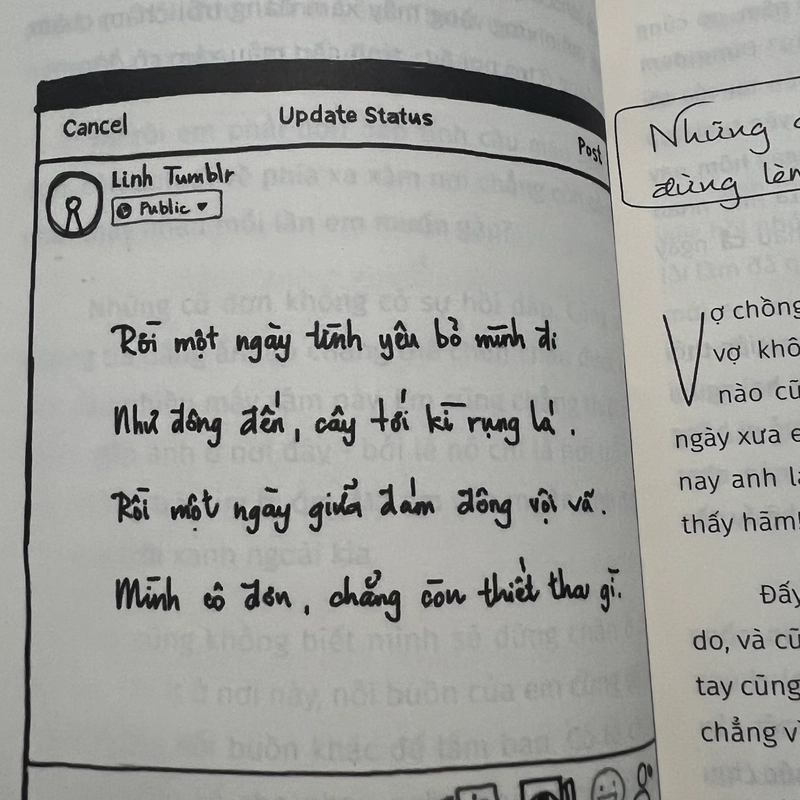 Cancel
Update Status
Post
Linh Tumblr
Public
Rồi một ngày tình yêu bỏ mình đi
Như đông đến, cây tới kì rụng lá.
Rồi một ngày giữa đám đông vội vã.
Mình cô đơn, chẳng còn thiết tha gì.
Những
đừng
Vợ chồng
vợ
nào
ngày xưa
nay anh
thấy hãm!
Đấy
do, và
tay cũng
chẳng